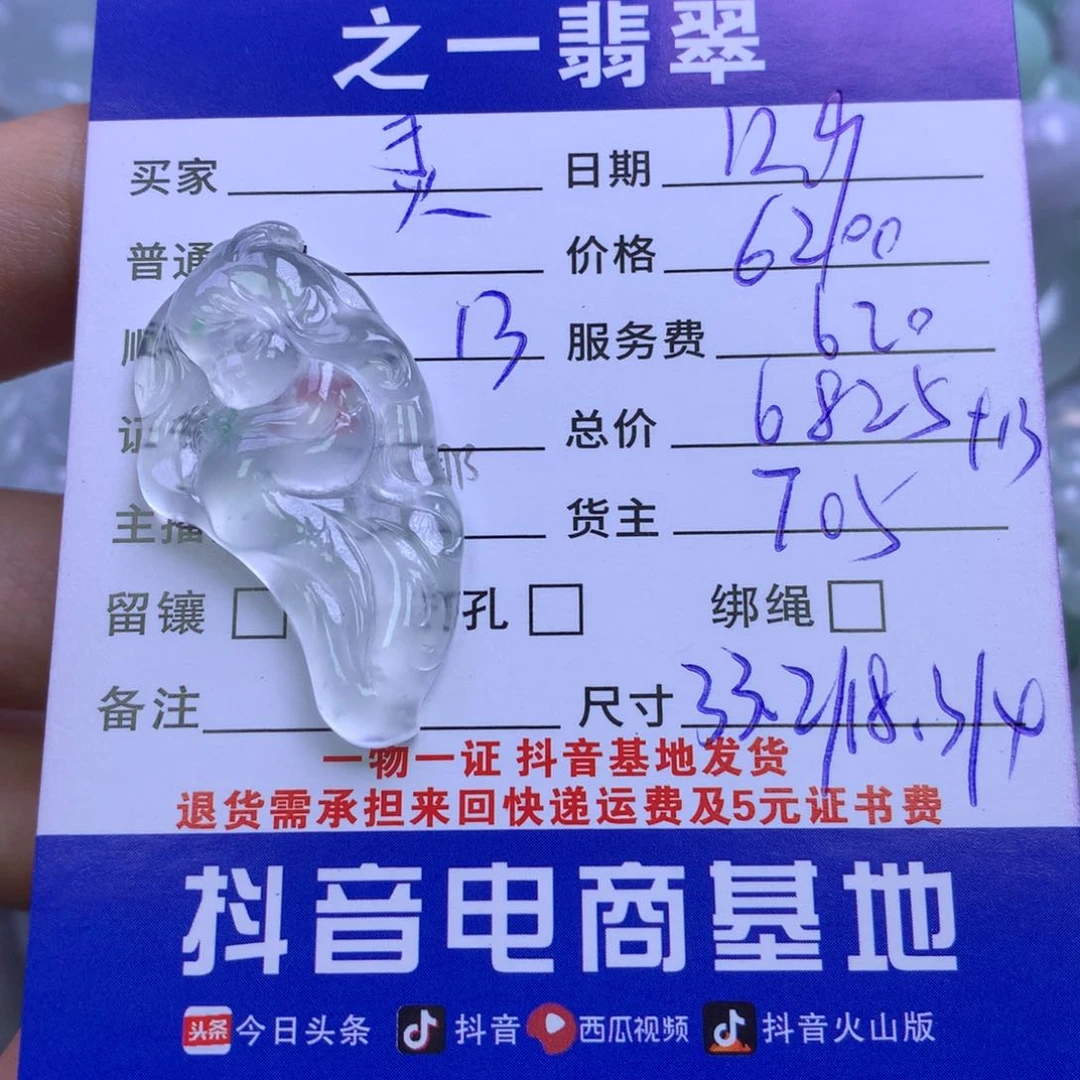 之一翡翠
买家 日期
普通 价格 6200
顺 13 服务费 620
证 总价 6825+13
主播 货主 705
留镶 孔 绑绳
备注 尺寸 33.2/18.3/4
一物一证 抖音基地发货
退货需承担来回快递运费及5元证书费
抖音电商基地
头条 今日头条 抖音 西瓜视频 抖音火山版